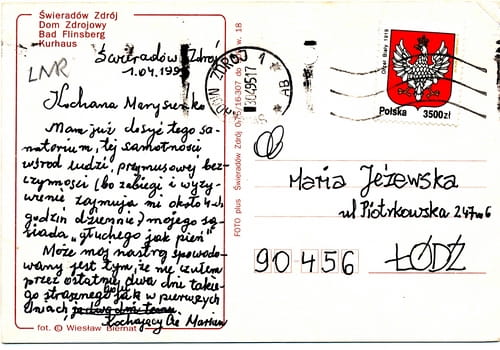 Świeradów Zdrój
Dom Zdrojowy
Bad Flinsberg
Kurhaus
LMR
Świeradów Zdrój
1.04.199
Kochana Marysieńko
Mam już dosyć tego sa-
natorium, tej samotności
wśród ludzi, przymusowej bez-
czynności (bo zabiegi i wyży-
wienie zajmują mi około 4-ch
godzin dziennie) mojego są-
siada "głuchego jak pień"
Może mój nastrój spowodo-
wany jest tym, że nie czułem
przez ostatnie dwa dni takie-
go strasznego bólu jak w pierwszych
dniach
Kochający Cię Marian
fot. © Wiesław Biernat
FOTO plus Świeradów Zdrój 0-75/16-307 do w. 18
ZDRÓJ 1
Orzeł Biały 1919
Polska 3500zł
Maria Jeżewska
ul Piotrkowska 247 m 6
90456 ŁÓDŹ